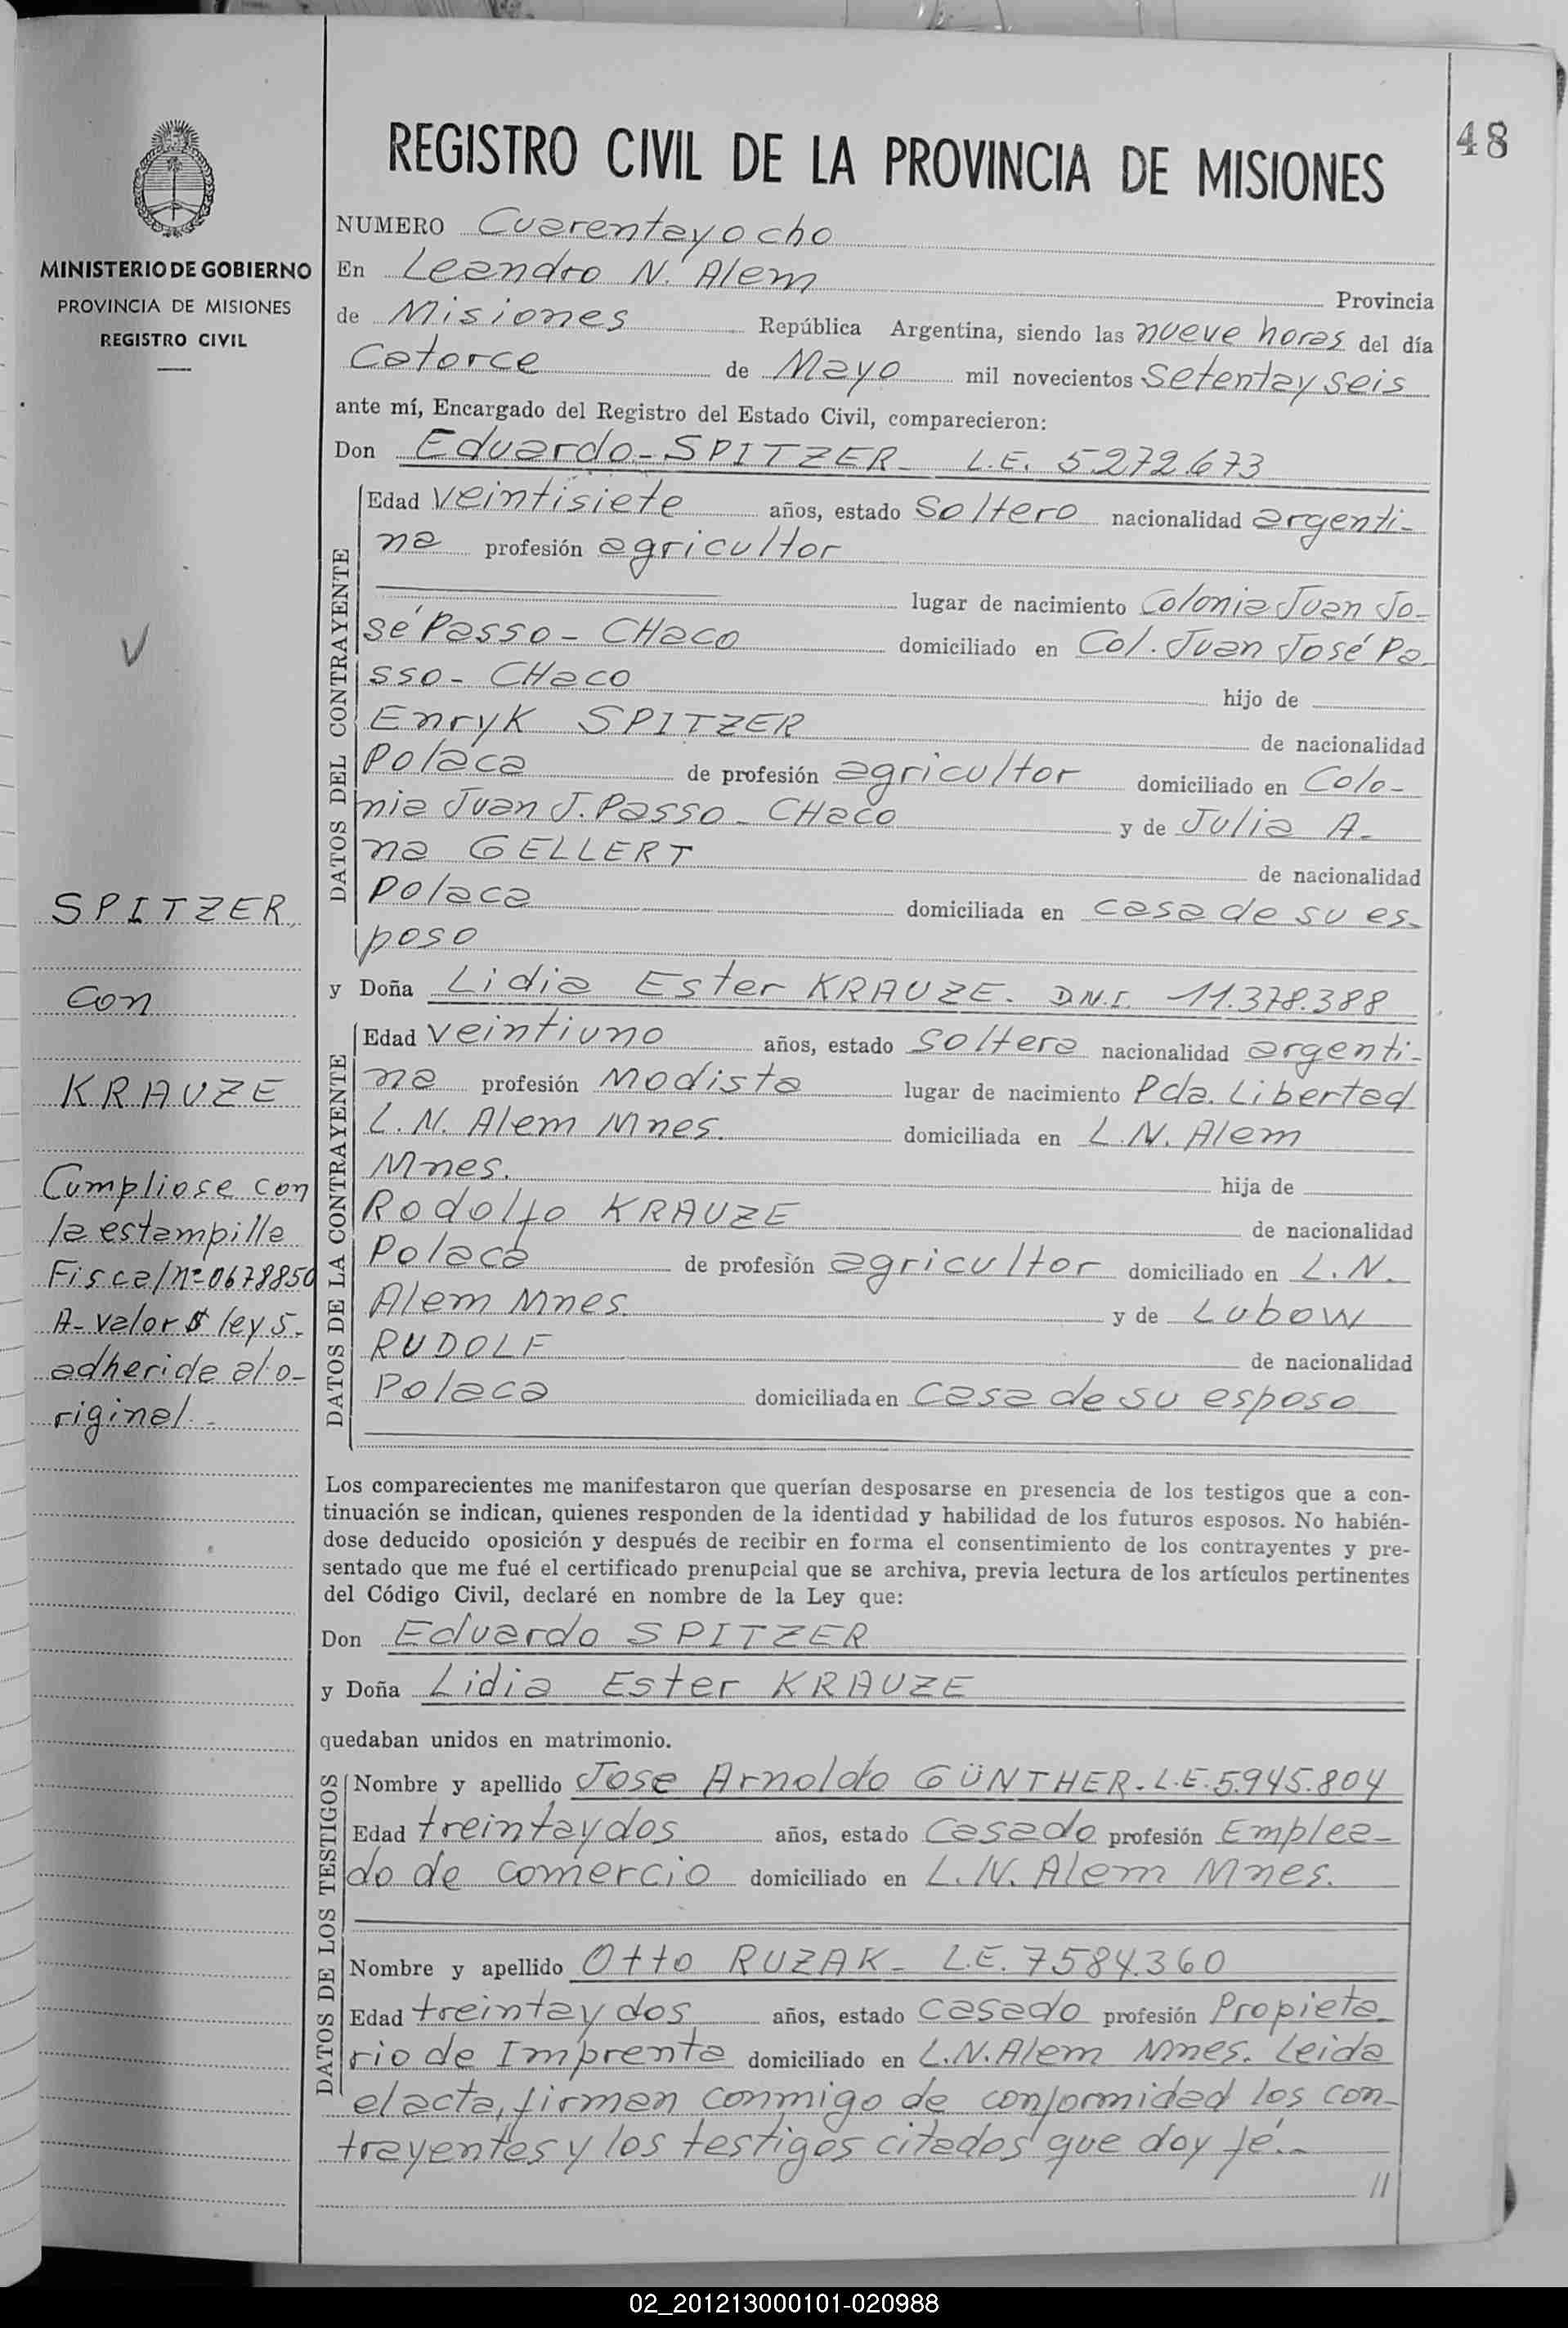 48
REGISTRO CIVIL DE LA PROVINCIA DE MISIONES
MINISTERIO DE GOBIERNO
PROVINCIA DE MISIONES
REGISTRO CIVIL
NUMERO Cuarentayocho
En Leandro N. Alem Provincia
de Misiones República Argentina, siendo las nueve horas del día
Catorce de Mayo mil novecientos Setentayseis
ante mí, Encargado del Registro del Estado Civil, comparecieron:
Don Eduardo-SPITZER- L.E. 5.272.673
DATOS DEL CONTRAYENTE
Edad veintisiete años, estado Soltero nacionalidad argenti-
na profesión agricultor
lugar de nacimiento Colonia Juan Jo-
sé Passo - CHaco domiciliado en Col. Juan José Pa-
sso - CHaco hijo de
Enryk SPITZER de nacionalidad
Polaca de profesión agricultor domiciliado en Colo-
nia Juan J. Passo - CHaco y de Julia A-
na GELLERT de nacionalidad
Polaca domiciliada en casa de su es-
poso
y Doña Lidia Ester KRAUZE. D.N.I. 11.378.388
DATOS DE LA CONTRAYENTE
Edad veintiuno años, estado Soltera nacionalidad argenti-
na profesión Modista lugar de nacimiento Pda. Libertad
L.N. Alem Mnes. domiciliada en L.N. Alem
Mnes. hija de
Rodolfo KRAUZE de nacionalidad
Polaca de profesión agricultor domiciliado en L.N.
Alem Mnes. y de Lubow
RUDOLF de nacionalidad
Polaca domiciliada en Casa de su esposo
SPITZER
con
KRAUZE
Cumpliose con
la estampilla
Fiscal nº 0678850
A- valor $ ley 5-
adherida al o-
riginal.-
Los comparecientes me manifestaron que querían desposarse en presencia de los testigos que a con-
tinuación se indican, quienes responden de la identidad y habilidad de los futuros esposos. No habién-
dose deducido oposición y después de recibir en forma el consentimiento de los contrayentes y pre-
sentado que me fué el certificado prenupcial que se archiva, previa lectura de los artículos pertinentes
del Código Civil, declaré en nombre de la Ley que:
Don Eduardo SPITZER
y Doña Lidia Ester KRAUZE
quedaban unidos en matrimonio.
DATOS DE LOS TESTIGOS
Nombre y apellido Jose Arnoldo GÜNTHER-L.E. 5.945.804
Edad treintaydos años, estado Casado profesión Emplea-
do de comercio domiciliado en L.N. Alem Mnes.
Nombre y apellido Otto RUZAK- L.E. 7584.360
Edad treintay dos años, estado Casado profesión Propieta-
rio de Imprenta domiciliado en L.N. Alem Mnes. Leida
el acta, firman conmigo de conformidad los con-
trayentes y los testigos citados que doy fé.-
//
02_201213000101-020988